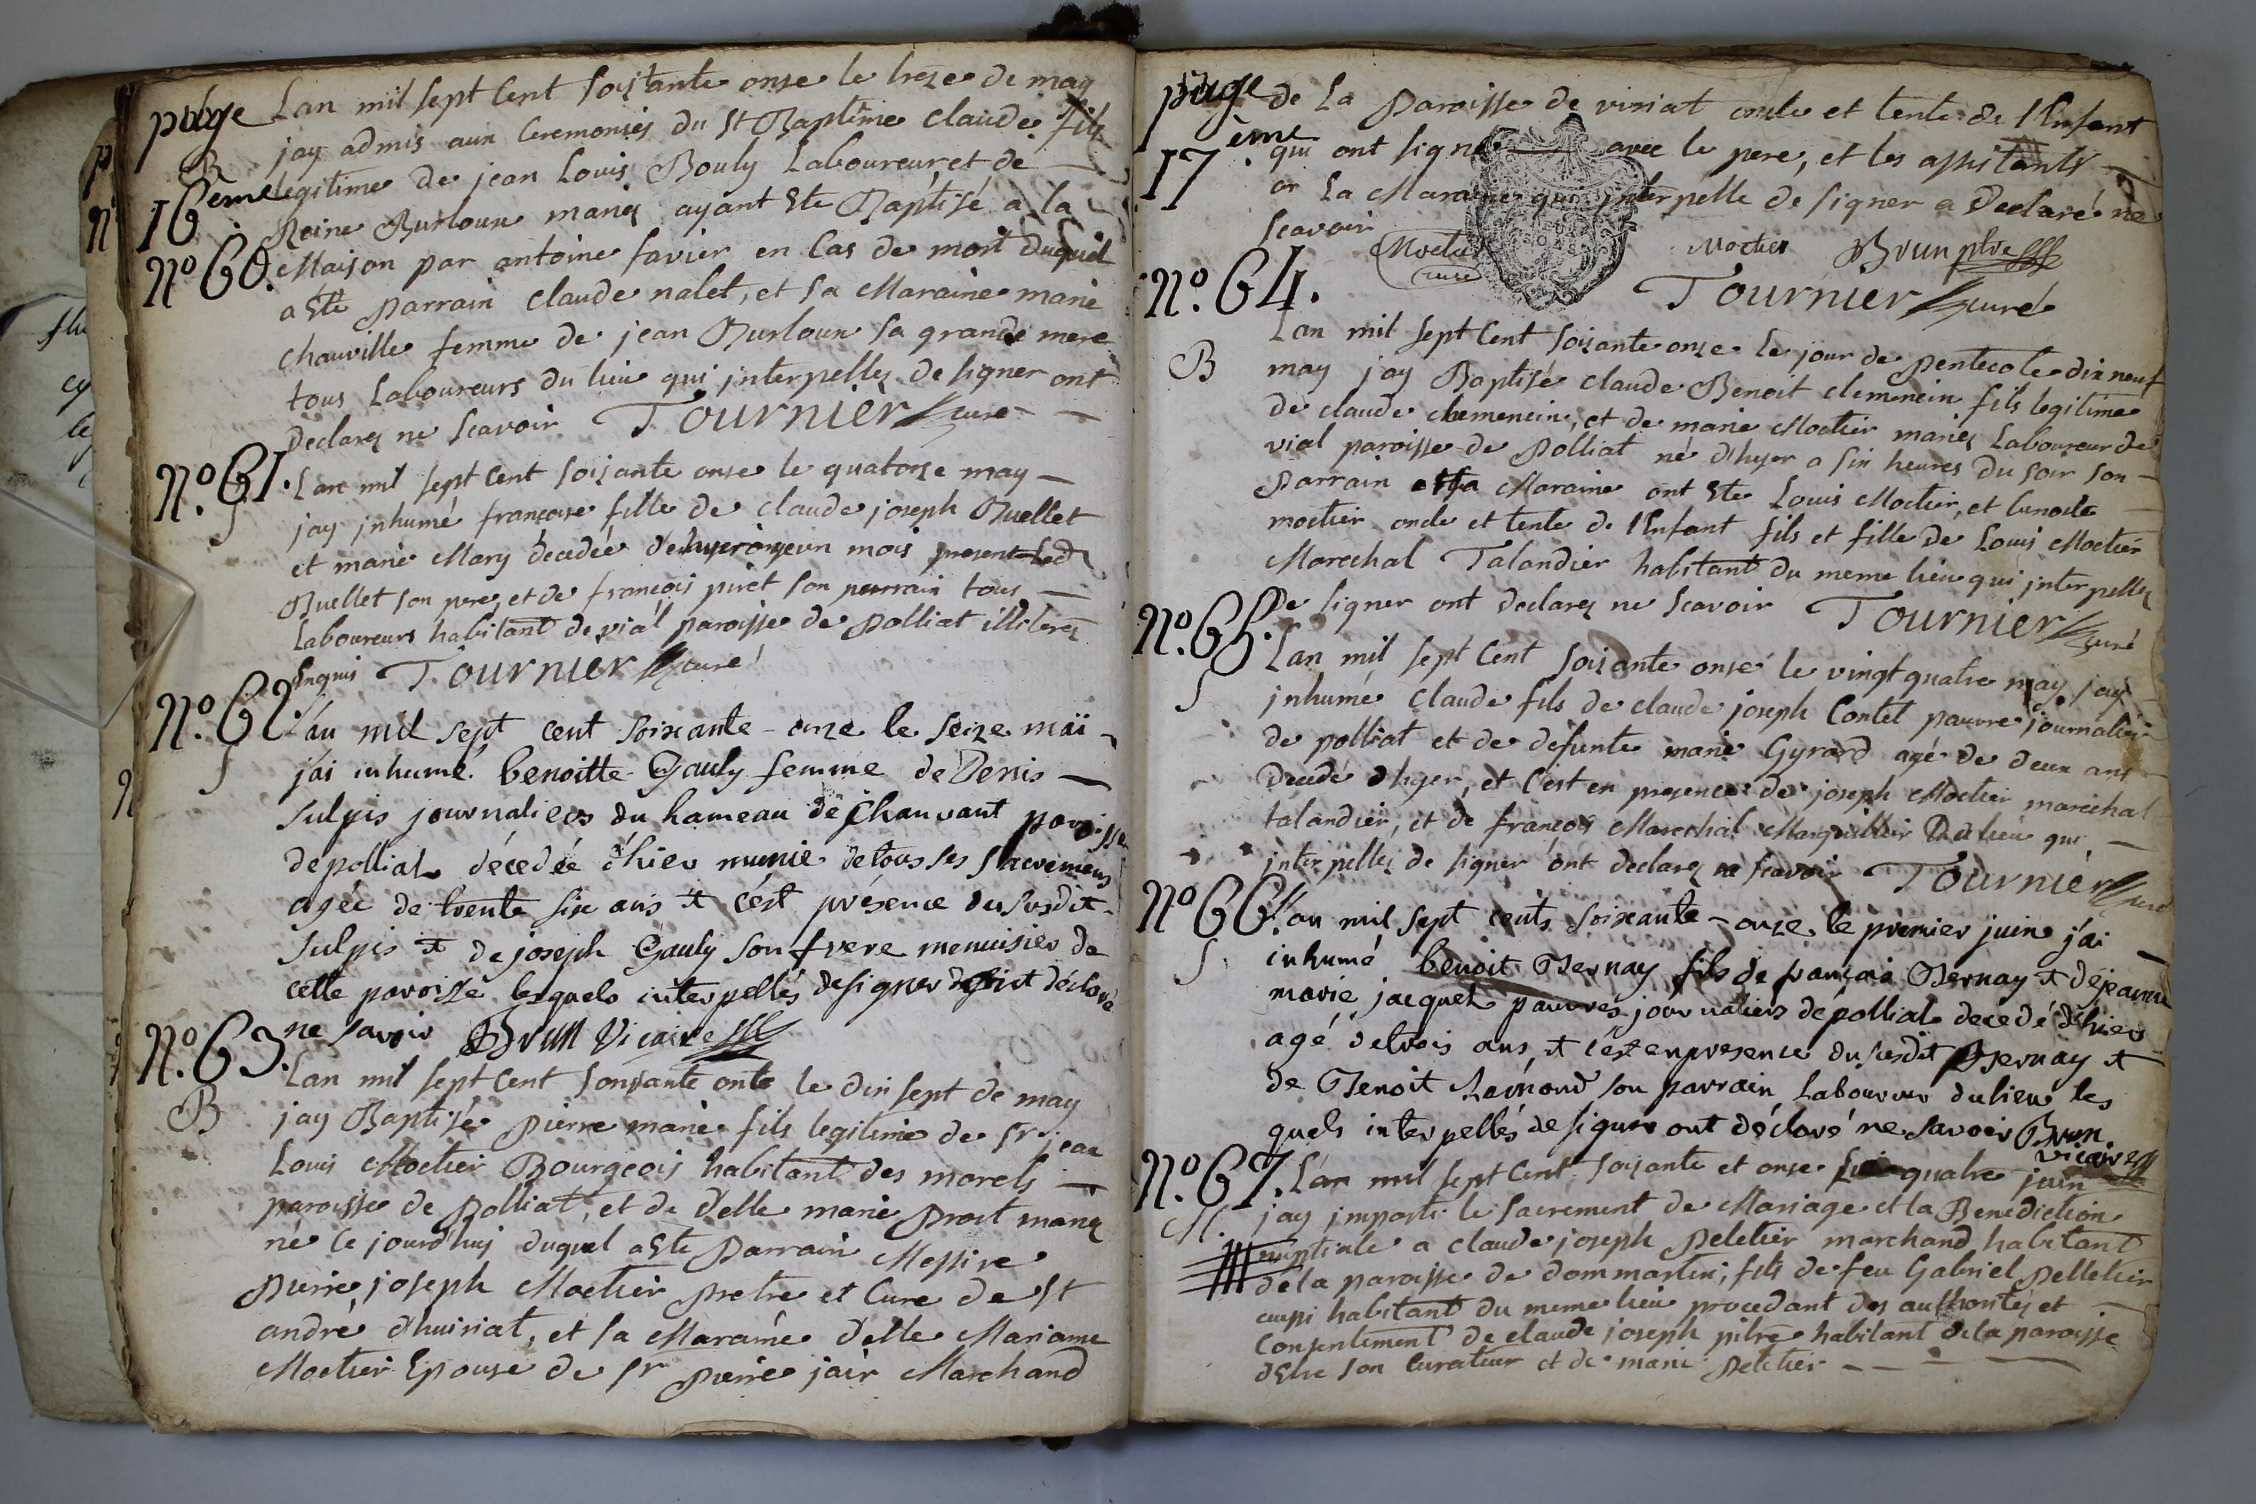 page
16eme
Lan mil sept Cent soixante onse le treze de may
jay admis aux Ceremonies du St Baptême claude fils
B
legitime de jean Louis Bouly Laboureur et de
Reine Burloux mariez ayant Ete Baptisé a la
No 60.
Maison par antoine favier en Cas de mort duquel
a Ete parrain claude nalet, et sa Maraine marie
chauville femme de jean Burloux sa grande mere
tous Laboureurs du lieu qui jnterpellez de signer ont
Declarez ne scavoir Tournier curé
No 61.
Lan mil sept Cent soixante onse le quatorze may
S
jay jnhumé françoise fille de claude joseph Buellet
et marie Mary decedée d'hyer agée un mois present led
Buellet son pere, et de françois piret son parrain tous
Laboureurs habitant de vial paroisse de Polliat illiterez
Enquis Tournier curé
No 62.
L'an mil sept cent soixante-onze le seize maï
S
j'ai inhumé benoitte Gauly femme de Denis
Sulpis journaliers du hameau de Chanvant paroisse
de polliat décedée d'hier munie de tous ses sacremens
agée de trente six ans et c'est présence du susdit
Sulpis et de joseph Gauly son frere menuisier de
cette paroisse lesquels interpellés de signer ont déclaré
ne savoir Brun Vicaire
No. 63.
Lan mil sept Cent soixante onse le dix sept de may
B
jay Baptisé pierre marie fils legitime de Sr jean
Louis Moctier Bourgeois habitant des morels
paroisse de Polliat, et de delle marie prost mariez
né ce jourdhuy duquel a Ete parrain Messire
pierre joseph Moctier pretre et Curé de St
andré d'huiriat, et sa Maraine delle Mariame
Moctier Epouse de Sr pierre jair Marchand
page
17ème
de La paroisse de viriat oncle et tente de l'Enfant
qui ont signé avec le pere, et les assistants
or La Maraine qui jnterpelle de signer a Declaré ne
scavoir
Moctier curé Moctier Brun ptre
Tournier curé
No. 64.
Lan mil sept Cent soixante onse le jour de pentecote dix neuf
B
may jay Baptisé claude Benoit clemencin fils legitime
de claude clemencin, et de marie Moctier mariez Laboureur de
vial paroisse de Polliat né d'hyer a six heures du soir son
parrain et sa Maraine ont Ete Louis Moctier, et benoite
moctier oncle et tente de l'Enfant fils et fille de Louis Moctier
Marechal Talandier habitant du meme lieu qui jnterpellez
de signer ont declarez ne scavoir Tournier curé
No 65.
Lan mil sept Cent soixante onse le vingt quatre may jay
S
jnhumé claude fils de claude joseph Contet pauvre journalier
de polliat et de defunte marie Gyrard agé de deux ans
Decedé d'hyer, et c'est en presence de joseph Moctier marechal
talandier, et de françois Marechal Marguillier Dudt lieu qui
jnterpellez de signer ont declarez ne scavoir Tournier curé
No 66.
L'an mil sept cents soixante-onze le premier juin j'ai
S
inhumé benoit Bernay fils de francois Bernay et de jeanne
marie jacquet pauvres journaliers de polliat decedé d'hier
agé de trois ans et c'est en presence du susdit Bernay et
de Benoit Raimond son parrain Laboureur du lieu les
quels interpellés de signer ont déclaré ne savoir Brun
vicaire
No. 67.
L'an mil sept Cent soixante et onse le quatre juin
M.
jay jmparti le sacrement de Mariage et la Benediction
nuptiale a claude joseph Peletier marchand habitant
de la paroisse de dommartin, fils de feu Gabriel Pelletier
aussi habitant du meme lieu procedant des authoritez et
Consentement de claude joseph pitre habitant de la paroisse
d'Etre son Curateur et de marie Peletier